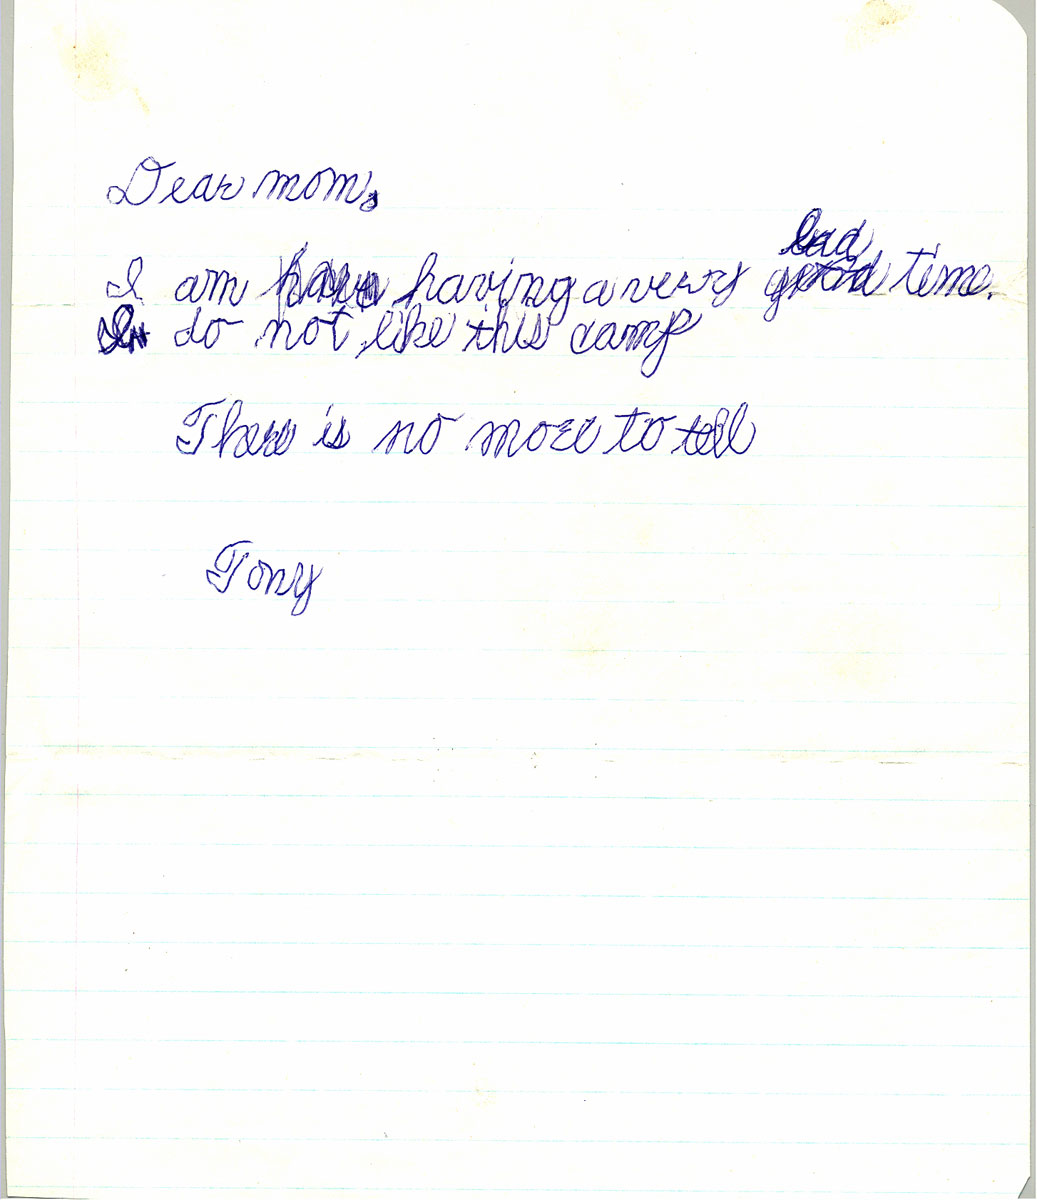 Dear mom,
bad
I am have having a very good time.
I do not like this camp
There is no more to tell
Tony